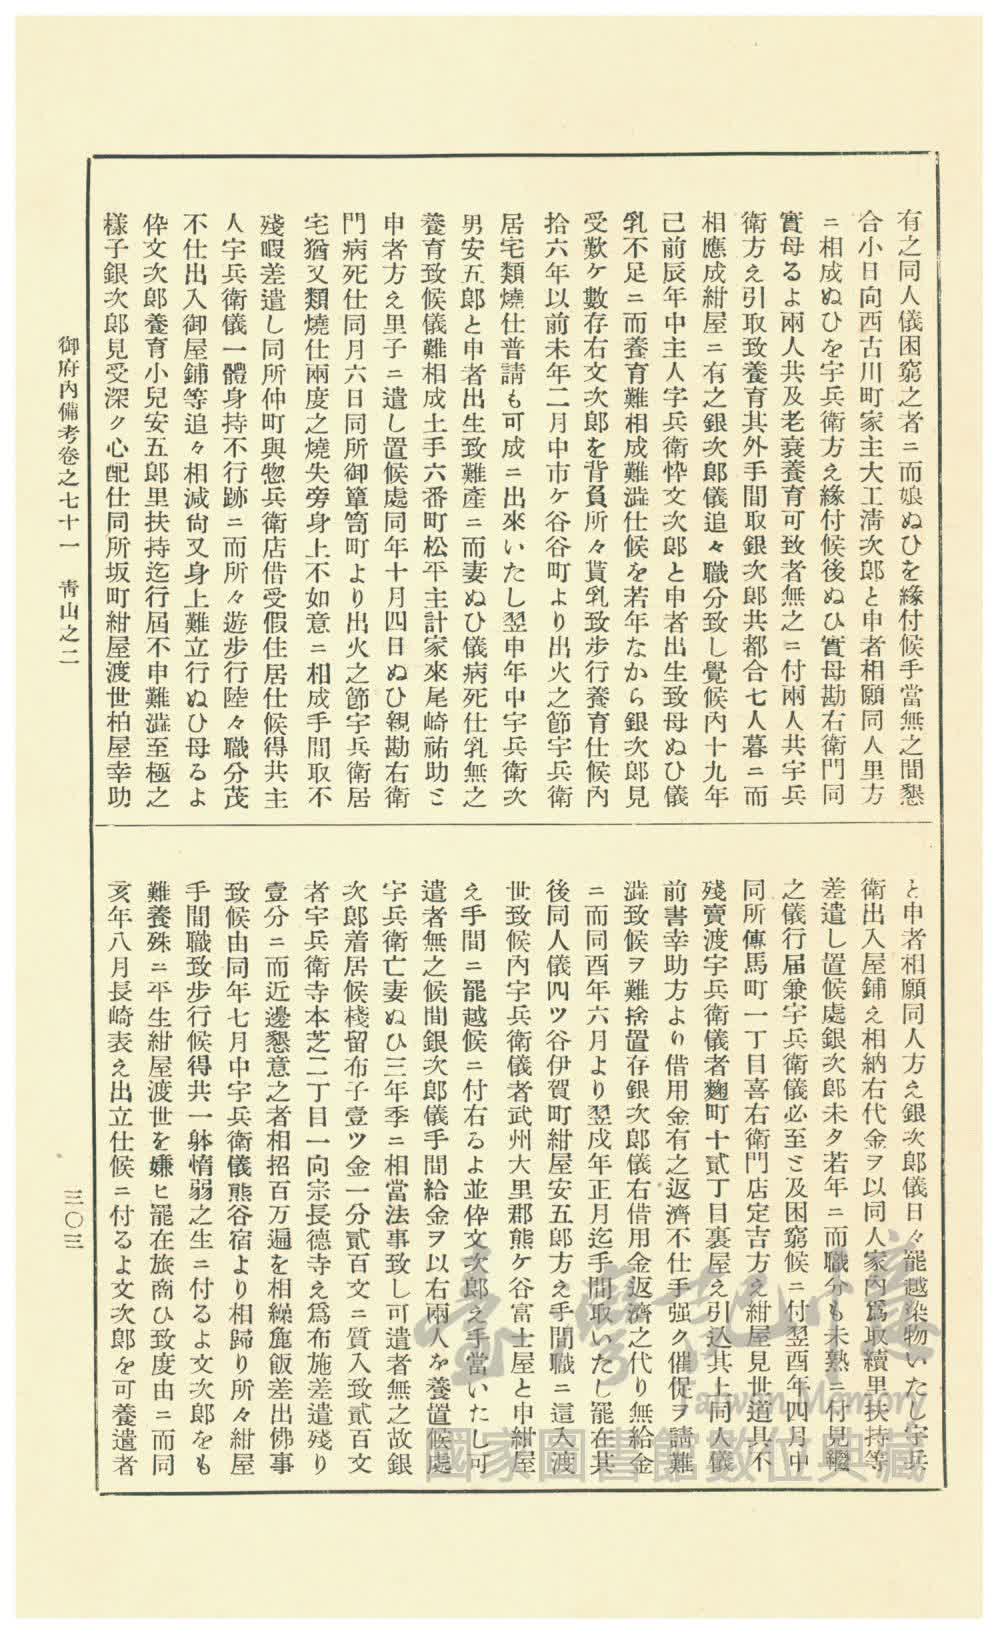 有之同人儀困窮之者ニ而娘ぬひを緣付候手當無之間懇
合小日向西古川町家主大工淸次郎と申者相願同人里方
ニ相成ぬひを宇兵衛方え緣付候後ぬひ實母勘右衛門同
實母るよ兩人共及老衰養育可致者無之ニ付兩人共宇兵
衛方え引取致養育其外手間取銀次郎共都合七人暮ニ而
相應成紺屋ニ有之銀次郎儀追々職分致し覺候內十九年
已前辰年中主人宇兵衛悴文次郎と申者出生致母ぬひ儀
乳不足ニ而養育難相成難澁仕候を若年なから銀次郎見
受歎ケ敷存右文次郎を背負所々貰乳致步行養育仕候內
拾六年以前未年二月中市ケ谷谷町より出火之節宇兵衛
居宅類燒仕普請も可成ニ出來いたし翌申年中宇兵衛次
男安五郎と申者出生致難產ニ而妻ぬひ儀病死仕乳無之
養育致候儀難相成土手六番町松平主計家來尾崎祐助と
申者方え里子ニ遣し置候處同年十月四日ぬひ親勘右衛
門病死仕同月六日同所御簞笥町より出火之節宇兵衛居
宅猶又類燒仕兩度之燒失旁身上不如意ニ相成手間取不
殘暇差遣し同所仲町與惣兵衛店借受假住居仕候得共主
人宇兵衛儀一體身持不行跡ニ而所々遊步行陸々職分茂
不仕出入御屋鋪等追々相減尙又身上難立行ぬひ母るよ
伜文次郎養育小兒安五郎里扶持迄行屆不申難澁至極之
樣子銀次郎見受深ク心配仕同所坂町紺屋渡世柏屋幸助
と申者相願同人方え銀次郎儀日々罷越染物いたし宇兵
衛出入屋鋪え相納右代金ヲ以同人家內爲取續里扶持等
差遣し置候處銀次郎未タ若年ニ而職分も未熟ニ付見繼
之儀行届兼宇兵衛儀必至と及困窮候ニ付翌酉年四月中
同所傳馬町一丁目喜右衛門店定吉方え紺屋見世道具不
殘賣渡宇兵衛儀者麴町十貳丁目裏屋え引込其上同人儀
前書幸助方より借用金有之返濟不仕手强ク催促ヲ請難
澁致候ヲ難捨置存銀次郎儀右借用金返濟之代り無給金
ニ而同酉年六月より翌戌年正月迄手間取いたし罷在其
後同人儀四ツ谷伊賀町紺屋安五郎方え手間職ニ這入渡
世致候內宇兵衛儀者武州大里郡熊ケ谷富士屋と申紺屋
え手間ニ罷越候ニ付右るよ並伜文次郎え手當いたし可
遣者無之候間銀次郎儀手間給金ヲ以右兩人を養置候處
宇兵衛亡妻ぬひ三年季ニ相當法事致し可遣者無之故銀
次郎着居候棧留布子壹ツ金一分貳百文ニ質入致貳百文
者宇兵衛寺本芝二丁目一向宗長德寺え爲布施差遣殘り
壹分ニ而近邊懇意之者相招百万遍を相繰麁飯差出佛事
致候由同年七月中宇兵衛儀熊谷宿より相歸り所々紺屋
手間職致步行候得共一躰惰弱之生ニ付るよ文次郎をも
難養殊ニ平生紺屋渡世を嫌ヒ罷在旅商ひ致度由ニ而同
亥年八月長崎表え出立仕候ニ付るよ文次郎を可養遣者
御府內備考卷之七十一　靑山之二
三〇三
臺灣記憶
Taiwan Memory
國家圖書館數位典藏